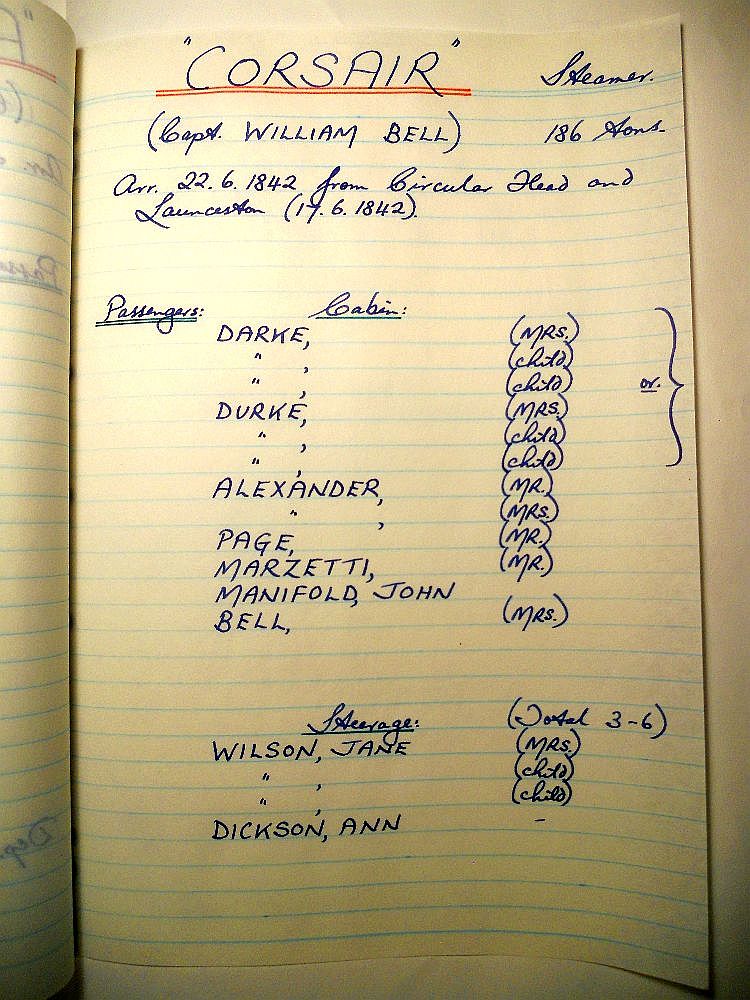 "CORSAIR" Steamer.
(Capt. WILLIAM BELL) 186 tons.
Arr. 22.6.1842 from Circular Head and
Launceston (17.6.1842).
Passengers: Cabin:
DARKE, (MRS.)
" , (child)
" , (child) or.
DURKE, (MRS.)
" , (child)
" , (child)
ALEXANDER, (MR.)
" , (MRS.)
PAGE, (MR.)
MARZETTI, (MR.)
MANIFOLD, JOHN
BELL, (MRS.)
Steerage: (Total 3-6)
WILSON, JANE (MRS.)
" , (child)
" , (child)
DICKSON, ANN -